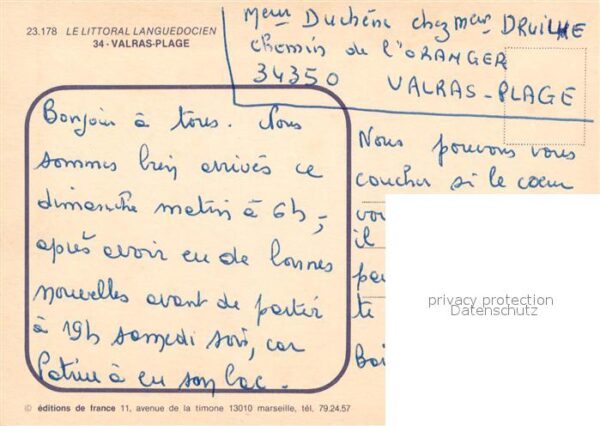 23.178 LE LITTORAL LANGUEDOCIEN
34 - VALRAS-PLAGE
Meur Duchène chez mer DRUILHE
chemin de l'ORANGER
34350 VALRAS-PLAGE
Bonjour à tous. Nous
sommes bien arrivés ce
dimanche matin à 6h,
après avoir eu de bonnes
nouvelles avant de partir
à 19h samedi soir, car
à eu son bac.
Nous pouvons vous
coucher si le cœur
vou
il
pe
te
Bai
privacy protection
Datenschutz
© éditions de france 11, avenue de la timone 13010 marseille, tél. 79.24.57